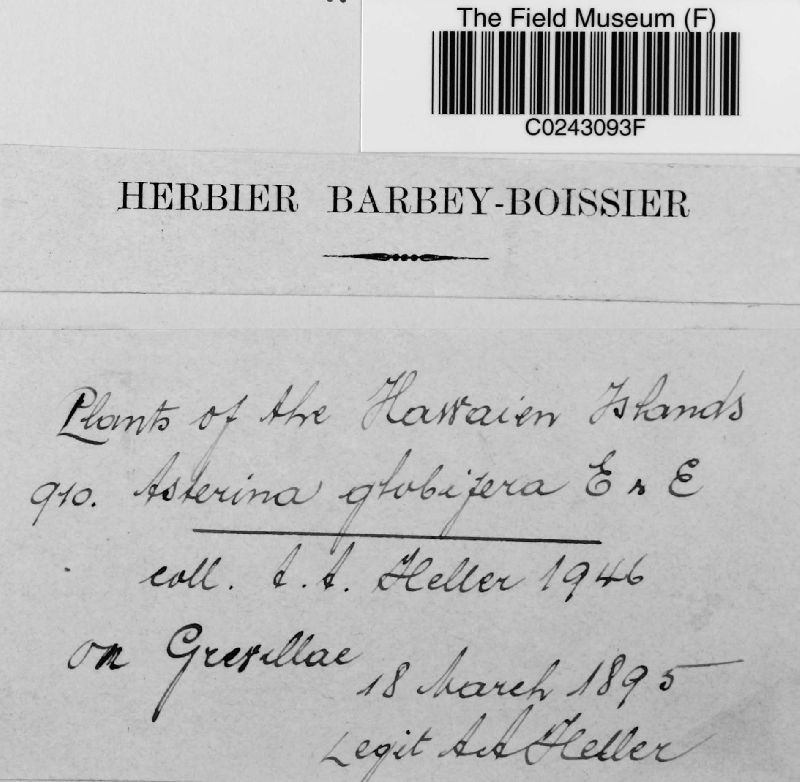 The Field Museum (F)
C0243093F
HERBIER BARBEY-BOISSIER
Plants of the Hawaien Islands
910. Asterina globifera E & E
coll. A. A. Heller 1946
on Grevillae
18 March 1895
Legit A A Heller